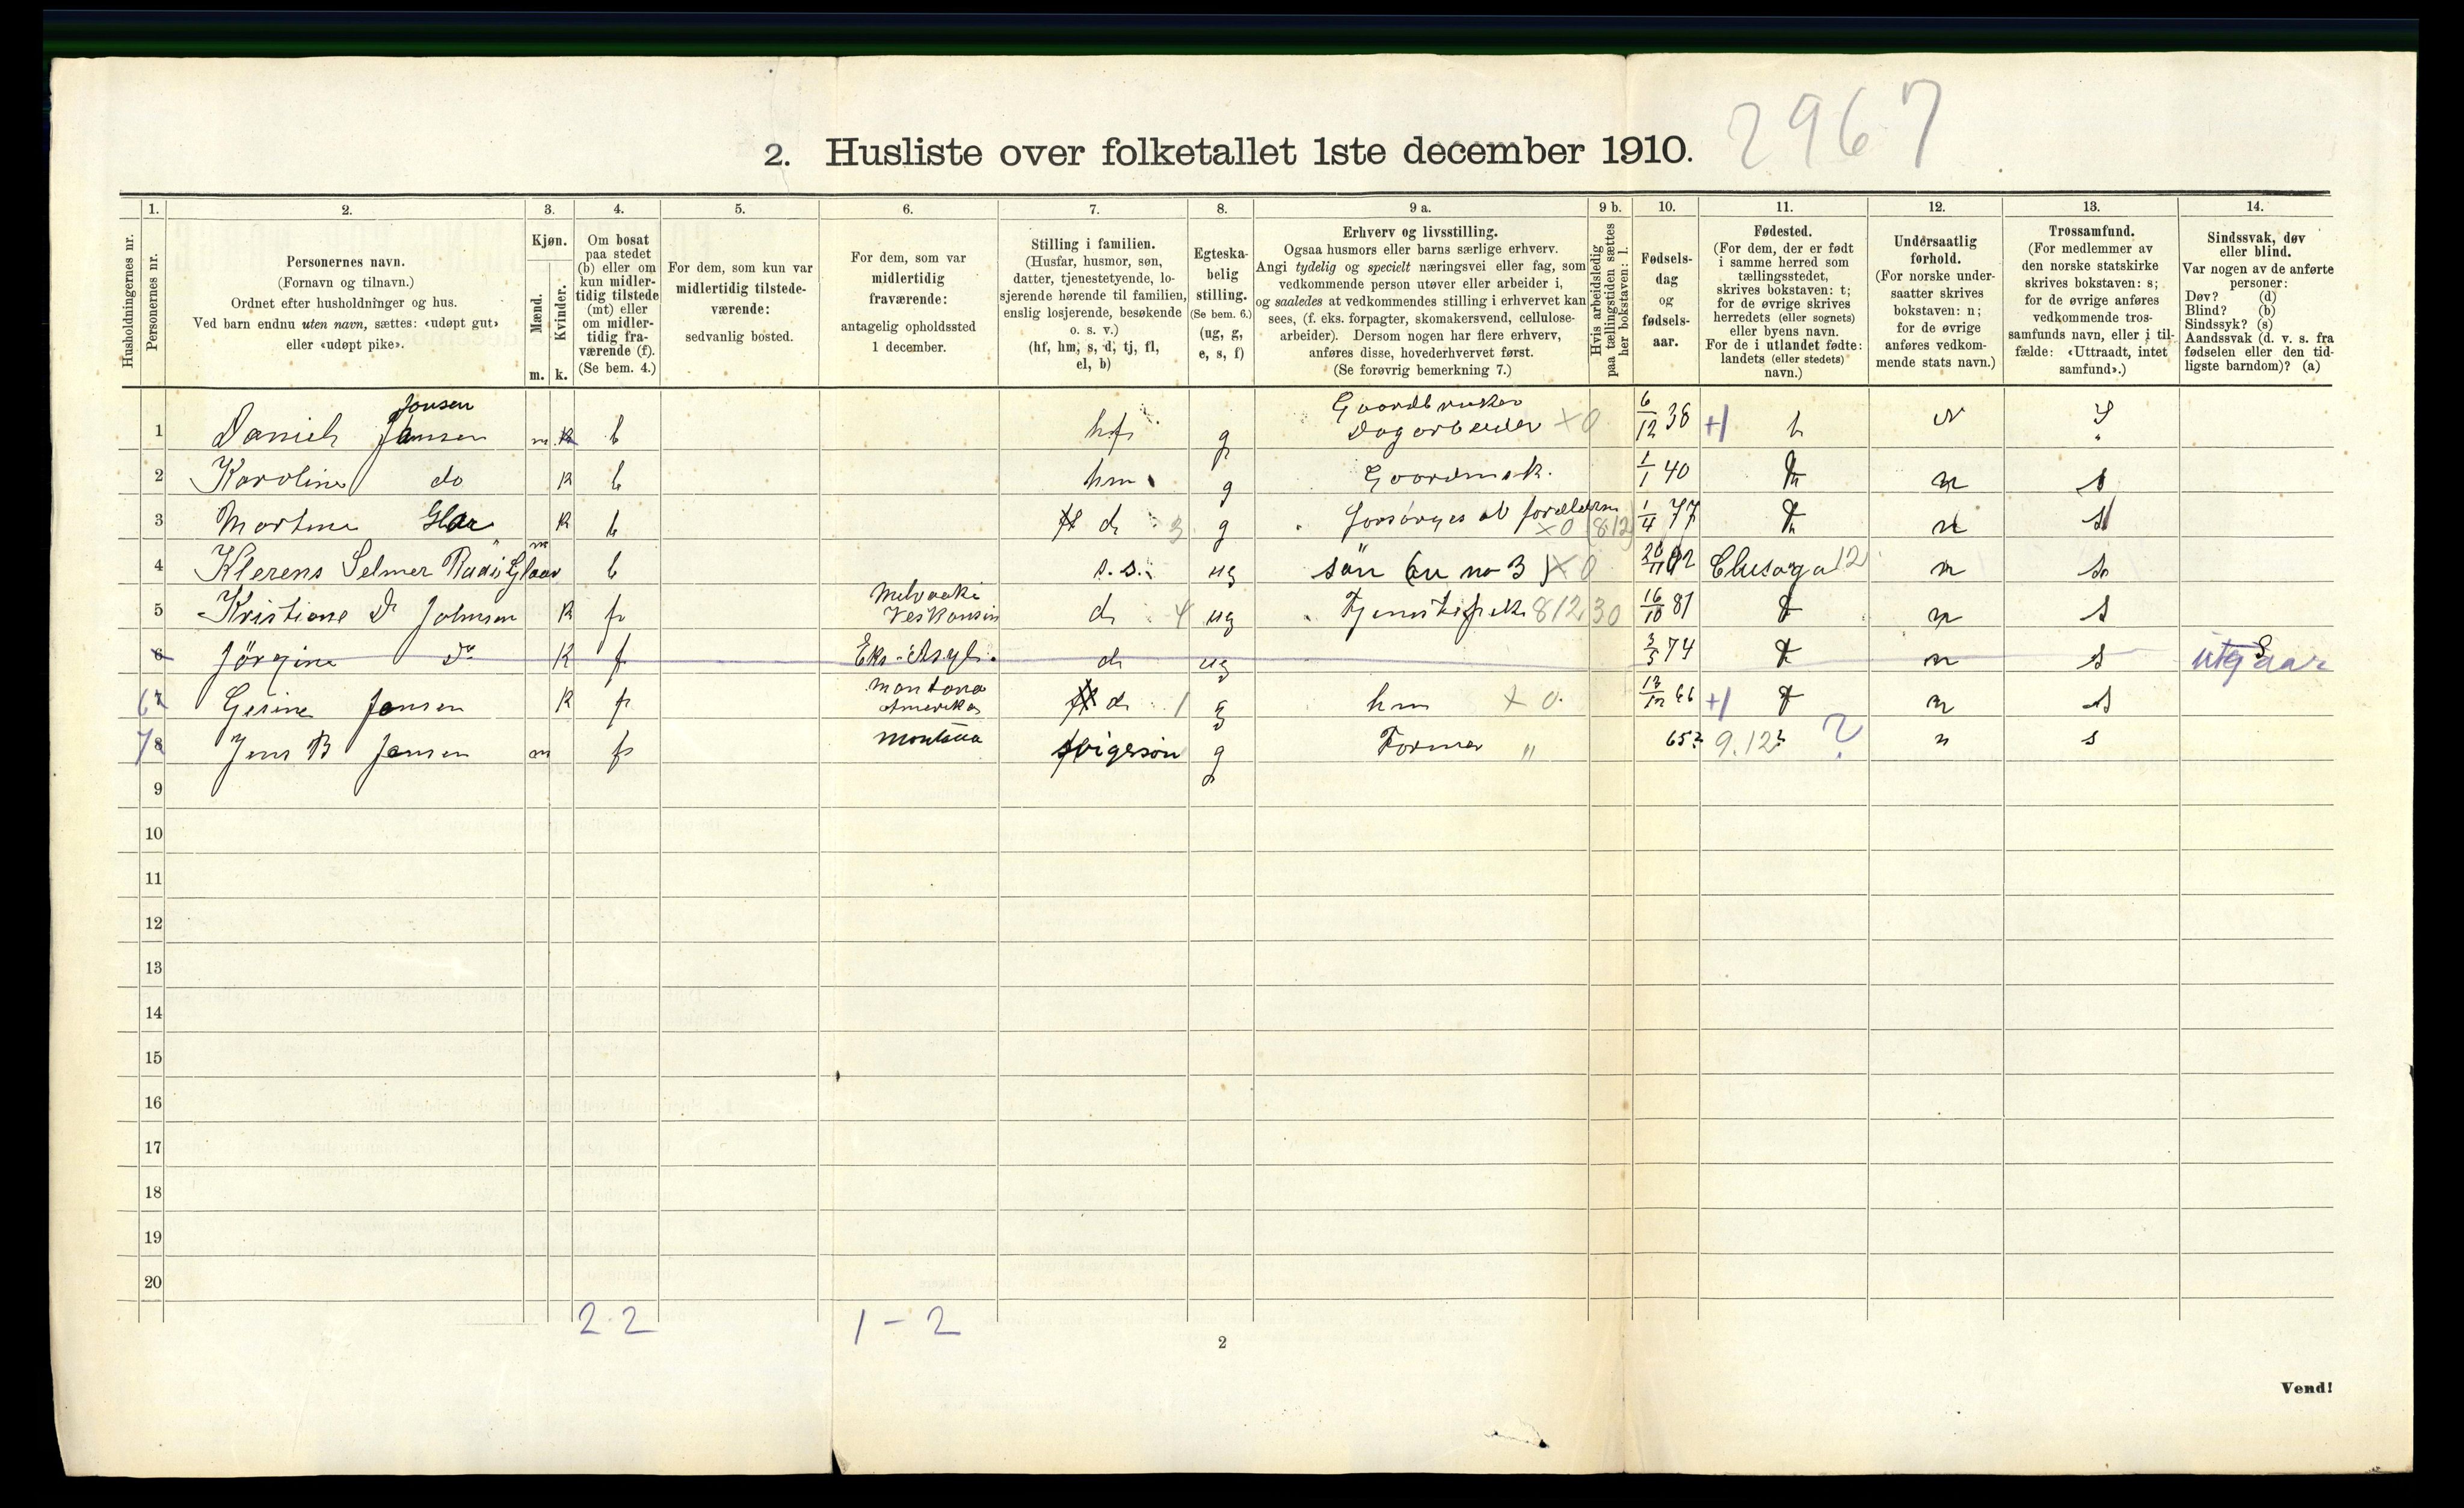 2967
2. Husliste over folketallet 1ste december 1910.
Husholdningernes nr.
1.
Personernes nr.
2.
Personernes navn.
(Fornavn og tilnavn.)
Ordnet efter husholdninger og hus.
Ved barn endnu uten navn, sættes: «udøpt gut»
eller «udøpt pike».
3.
Kjøn.
Mænd.
Kvinder.
m. k.
4.
Om bosat
paa stedet
(b) eller om
kun midler-
tidig tilstede
(mt) eller
om midler-
tidig fra-
værende (f).
(Se bem. 4.)
5.
For dem, som kun var
midlertidig tilstede-
værende:
sedvanlig bosted.
6.
For dem, som var
midlertidig
fraværende:
antagelig opholdssted
1 december.
7.
Stilling i familien.
(Husfar, husmor, søn,
datter, tjenestetyende, lo-
sjerende hørende til familien,
enslig losjerende, besøkende
o. s. v.)
(hf, hm, s, d, tj, fl,
el, b)
8.
Egteska-
belig
stilling.
(Se bem. 6.)
(ug, g,
e, s, f)
9 a.
Erhverv og livsstilling.
Ogsaa husmors eller barns særlige erhverv.
Angi tydelig og specielt næringsvei eller fag, som
vedkommende person utøver eller arbeider i,
og saaledes at vedkommendes stilling i erhvervet kan
sees, (f. eks. forpagter, skomakersvend, cellulose-
arbeider). Dersom nogen har flere erhverv,
anføres disse, hovederhvervet først.
(Se forøvrig bemerkning 7.)
9 b.
Hvis arbeidsledig
paa tællingstiden sættes
her bokstaven: l.
10.
Fødsels-
dag
og
fødsels-
aar.
11.
Fødested.
(For dem, der er født
i samme herred som
tællingsstedet,
skrives bokstaven: t;
for de øvrige skrives
herredets (eller sognets)
eller byens navn.
For de i utlandet fødte:
landets (eller stedets)
navn.)
12.
Undersaatlig
forhold.
(For norske under-
saatter skrives
bokstaven: n;
for de øvrige
anføres vedkom-
mende stats navn.)
13.
Trossamfund.
(For medlemmer av
den norske statskirke
skrives bokstaven: s;
for de øvrige anføres
vedkommende tros-
samfunds navn, eller i til-
fælde: «Uttraadt, intet
samfund».)
14.
Sindssvak, døv
eller blind.
Var nogen av de anførte
personer:
Døv? (d)
Blind? (b)
Sindssyk? (s)
Aandssvak (d. v. s. fra
fødselen eller den tid-
ligste barndom)? (a)
Jonsen Gaardbruker
1 Daniel Jansen m k b hf g Dagarbeider X 0 6/12 38 +1 t N S
2 Karoline do k b hm g Gaardmsk. 1/1 40 t n s
3 Martine k b d 3 g forsørges af forældrene X 0 (812) 1/4 77 t n s
4 Klerens Selmer m b s.s. ug sön (en no 3) X 0 12 n s
Melvaaki
5 Kristiane Johnsen k f Veskonsin d 4 ug 812 30 16/10 81 t n s
6 Jörgine Do k f Eks. Asyl. d ug 3/5 74 t n s S utgaar
montana
67 Gesine Jansen k f Amerika d 1 g hm X 0 13/12 66 +1 t n s
78 Jens B Jansen m f montana svigersön g Farmer " 65? 9.12? ? n s
9
10
11
12
13
14
15
16
17
18
19
20
2 2 1 - 2
2
Vend!